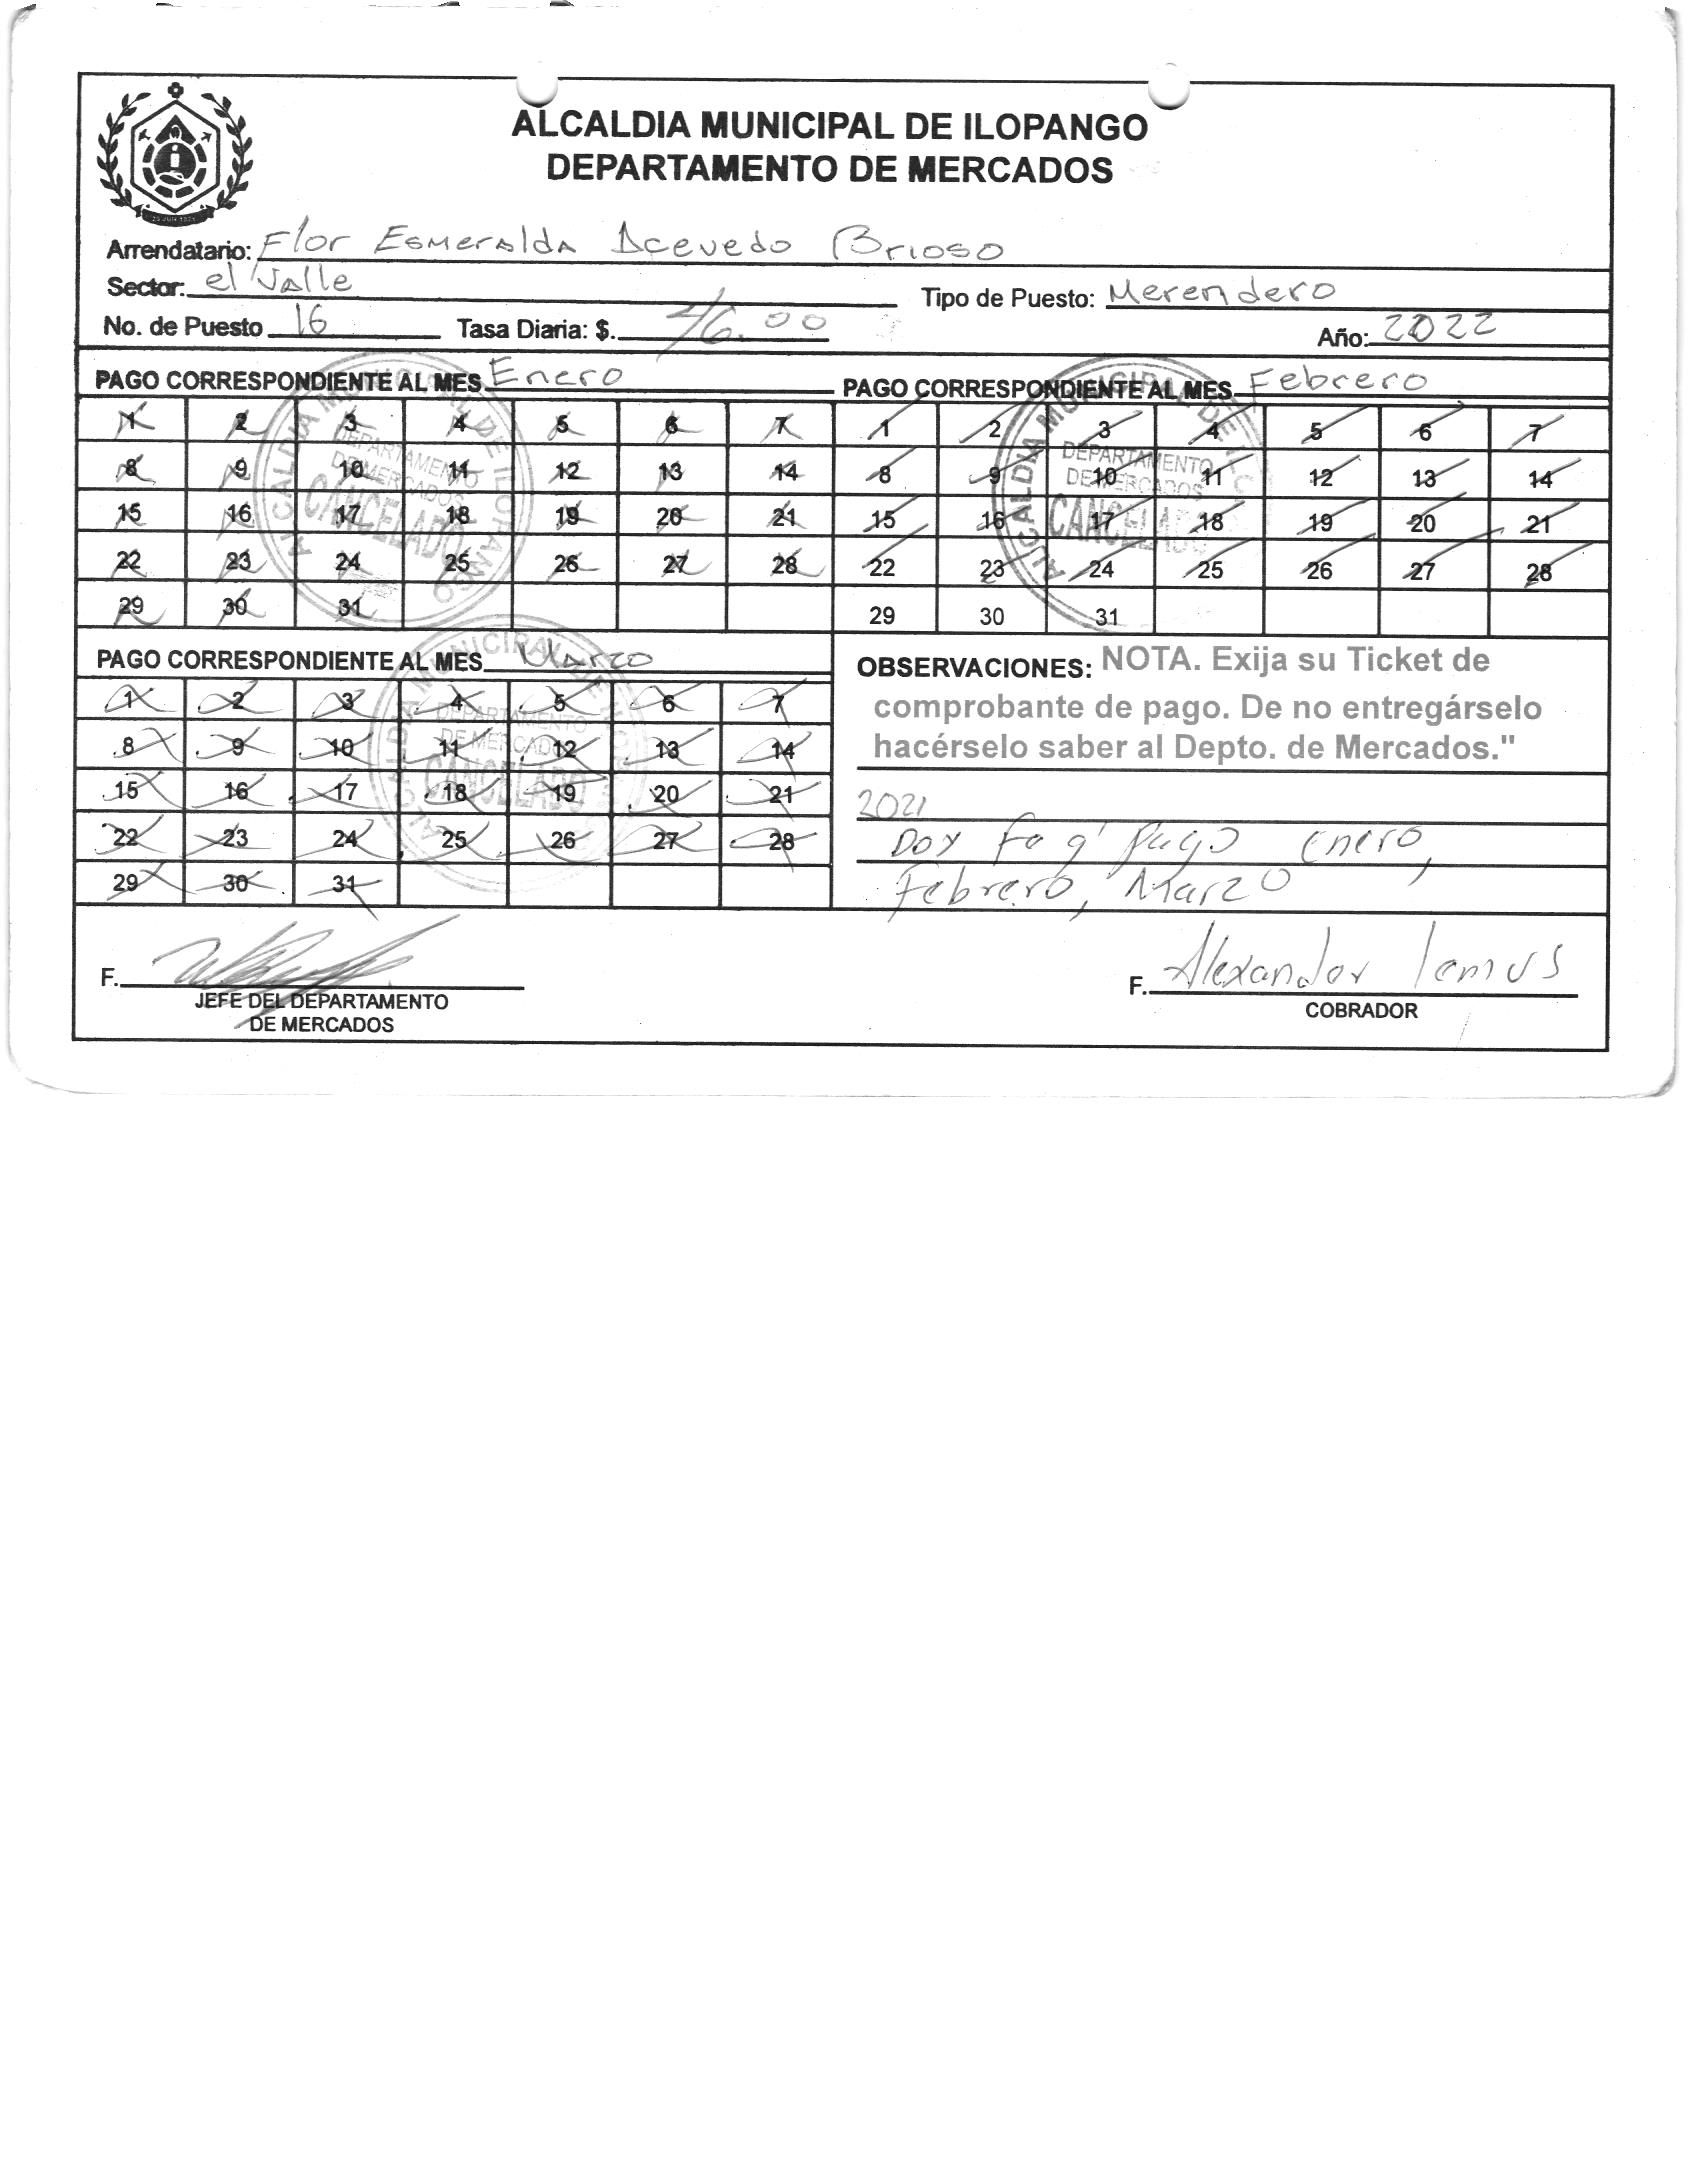 ALCALDIA MUNICIPAL DE ILOPANGO
DEPARTAMENTO DE MERCADOS
Arrendatario: Flor Esmeralda Acevedo Brioso
Sector: el Valle
Tipo de Puesto: Merendero
No. de Puesto 16 Tasa Diaria: $. 46.00
Año: 2022
PAGO CORRESPONDIENTE AL MES Enero
1 2 3 4 5 6 7
8 9 10 11 12 13 14
15 16 17 18 19 20 21
22 23 24 25 26 27 28
29 30 31
ALCALDIA MUNICIPAL DE ILOPANGO
DEPARTAMENTO
DE MERCADOS
CANCELADO
PAGO CORRESPONDIENTE AL MES Febrero
1 2 3 4 5 6 7
8 9 10 11 12 13 14
15 16 17 18 19 20 21
22 23 24 25 26 27 28
29 30 31
ALCALDIA MUNICIPAL DE
DEPARTAMENTO
DE MERCADOS
CANCELADO
PAGO CORRESPONDIENTE AL MES Marzo
1 2 3 4 5 6 7
8 9 10 11 12 13 14
15 16 17 18 19 20 21
22 23 24 25 26 27 28
29 30 31
ALCALDIA MUNICIPAL DE
DEPARTAMENTO
DE MERCADOS
CANCELADO
OBSERVACIONES: NOTA. Exija su Ticket de
comprobante de pago. De no entregárselo
hacérselo saber al Depto. de Mercados."
2021
Doy Fe q' pago enero,
Febrero, Marzo
F.
JEFE DEL DEPARTAMENTO
DE MERCADOS
F. Alexander Lemus
COBRADOR